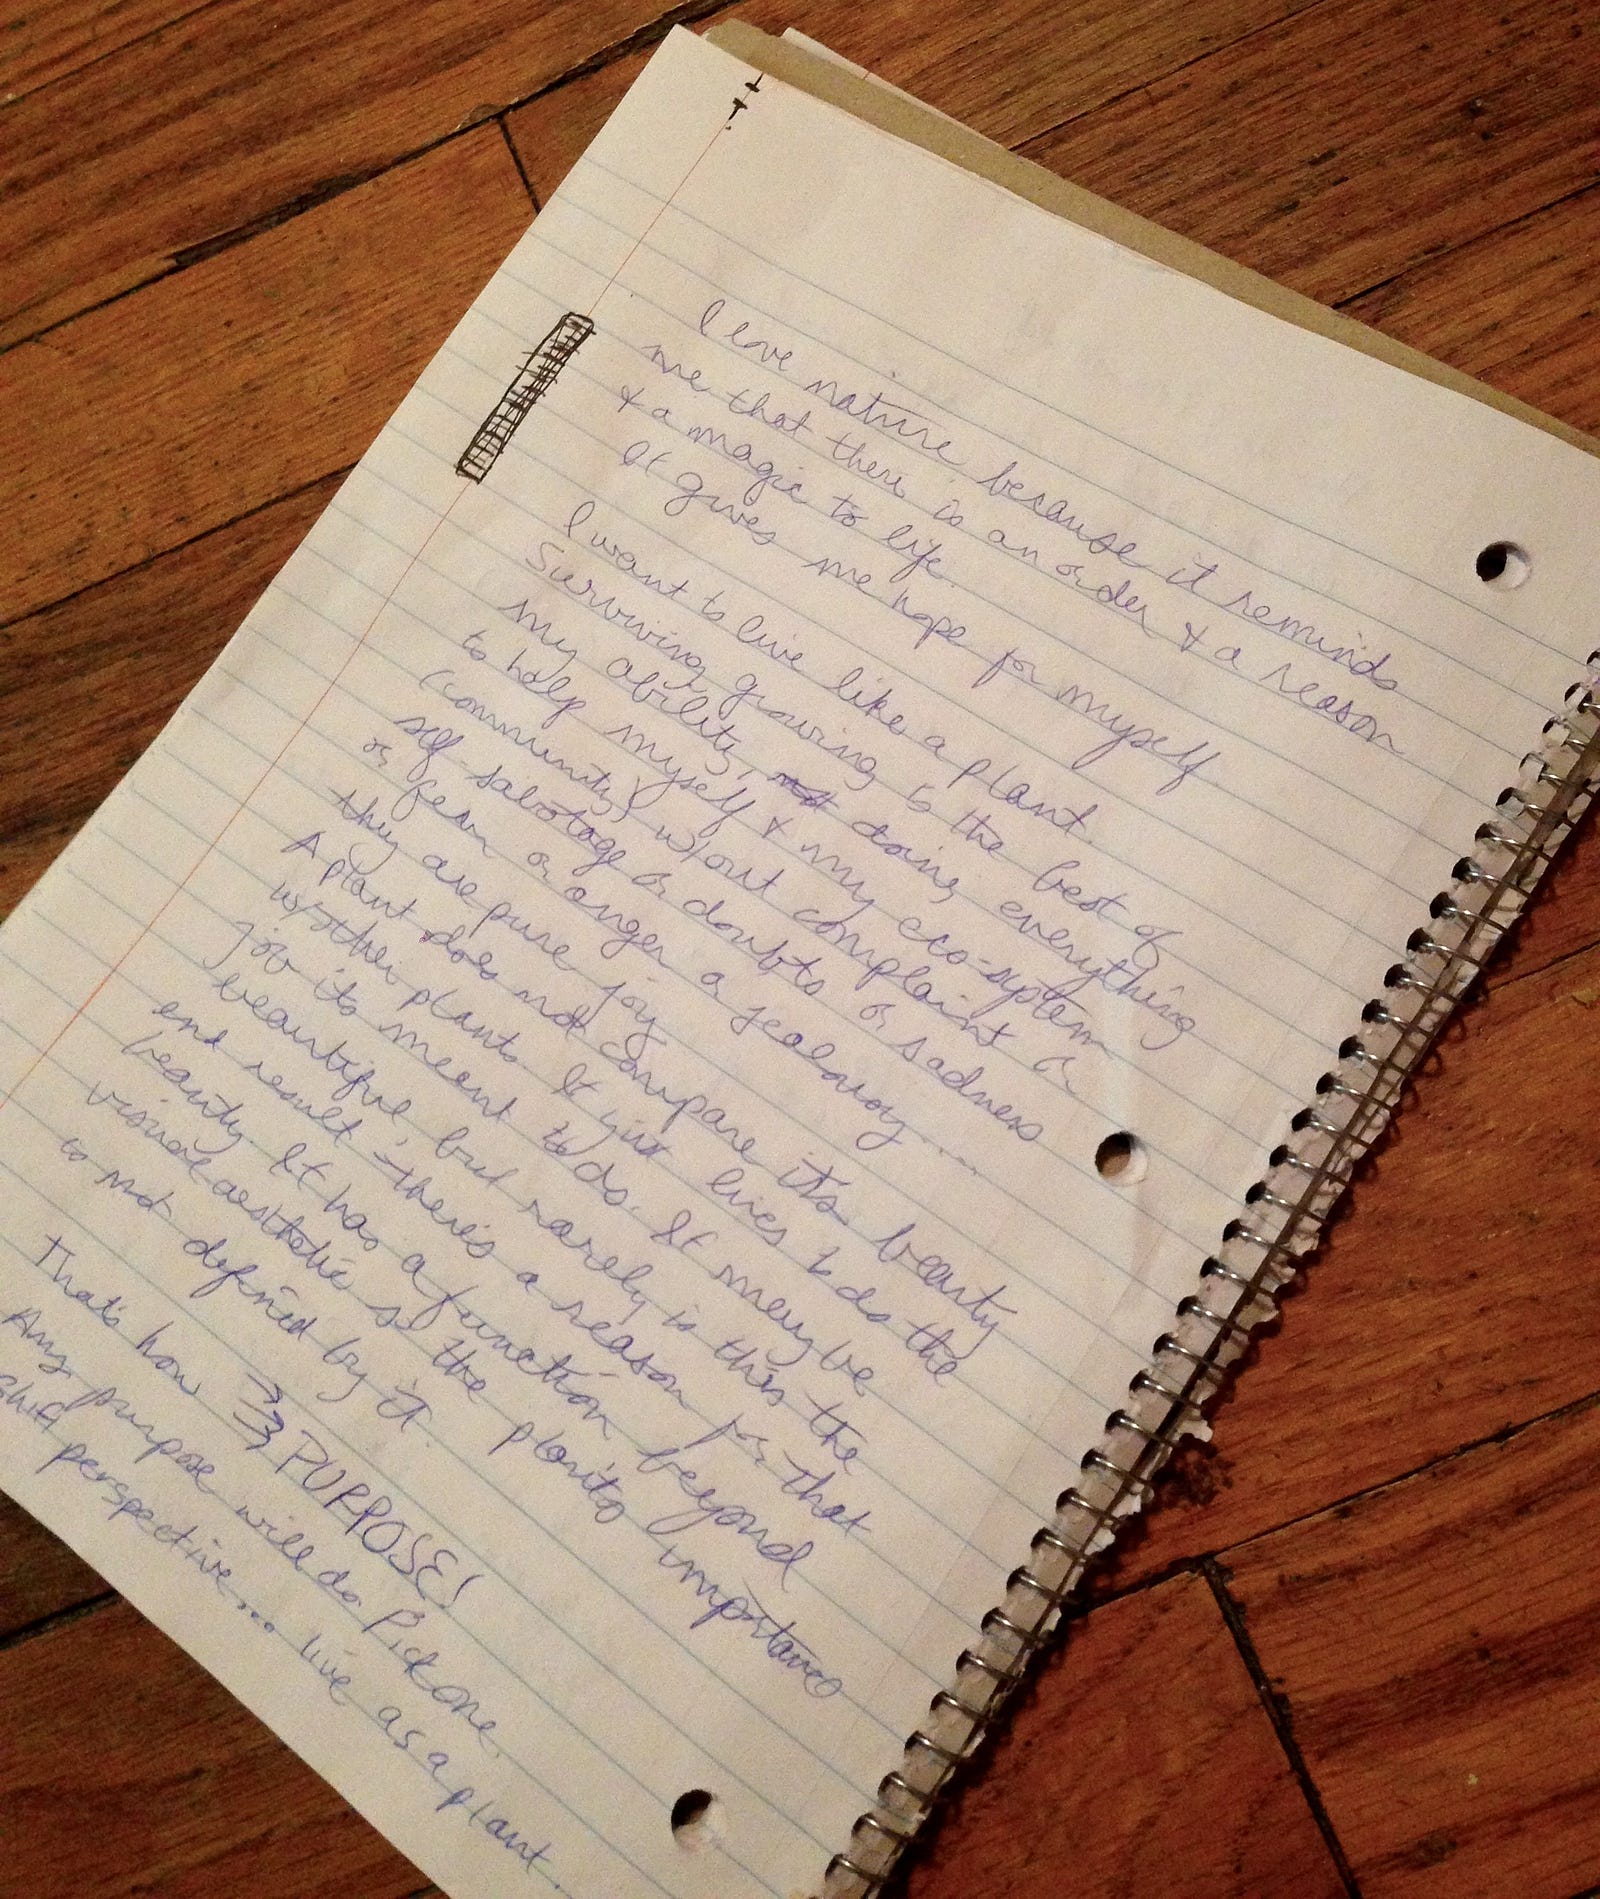 I love nature because it reminds
me that there is an order & a reason
& a magic to life.
It gives me hope for myself
I want to live like a plant.
Surviving, growing to the best of
my ability, doing everything
to help myself & my eco-system
(community) w/out complaint or
self-sabotage or doubts or sadness
or fear or anger or jealousy....
they are pure joy
A plant does not compare its beauty
w/other plants. It just lives to do the
job its meant to do. It may be
beautiful, but rarely is this the
end result - there's a reason for that
beauty. It has a function beyond
visual aesthetic so the plants importance
is not defined by it.
That's how ⇒ PURPOSE!
Any purpose will do. Pick one.
Shift perspective... live as a plant.